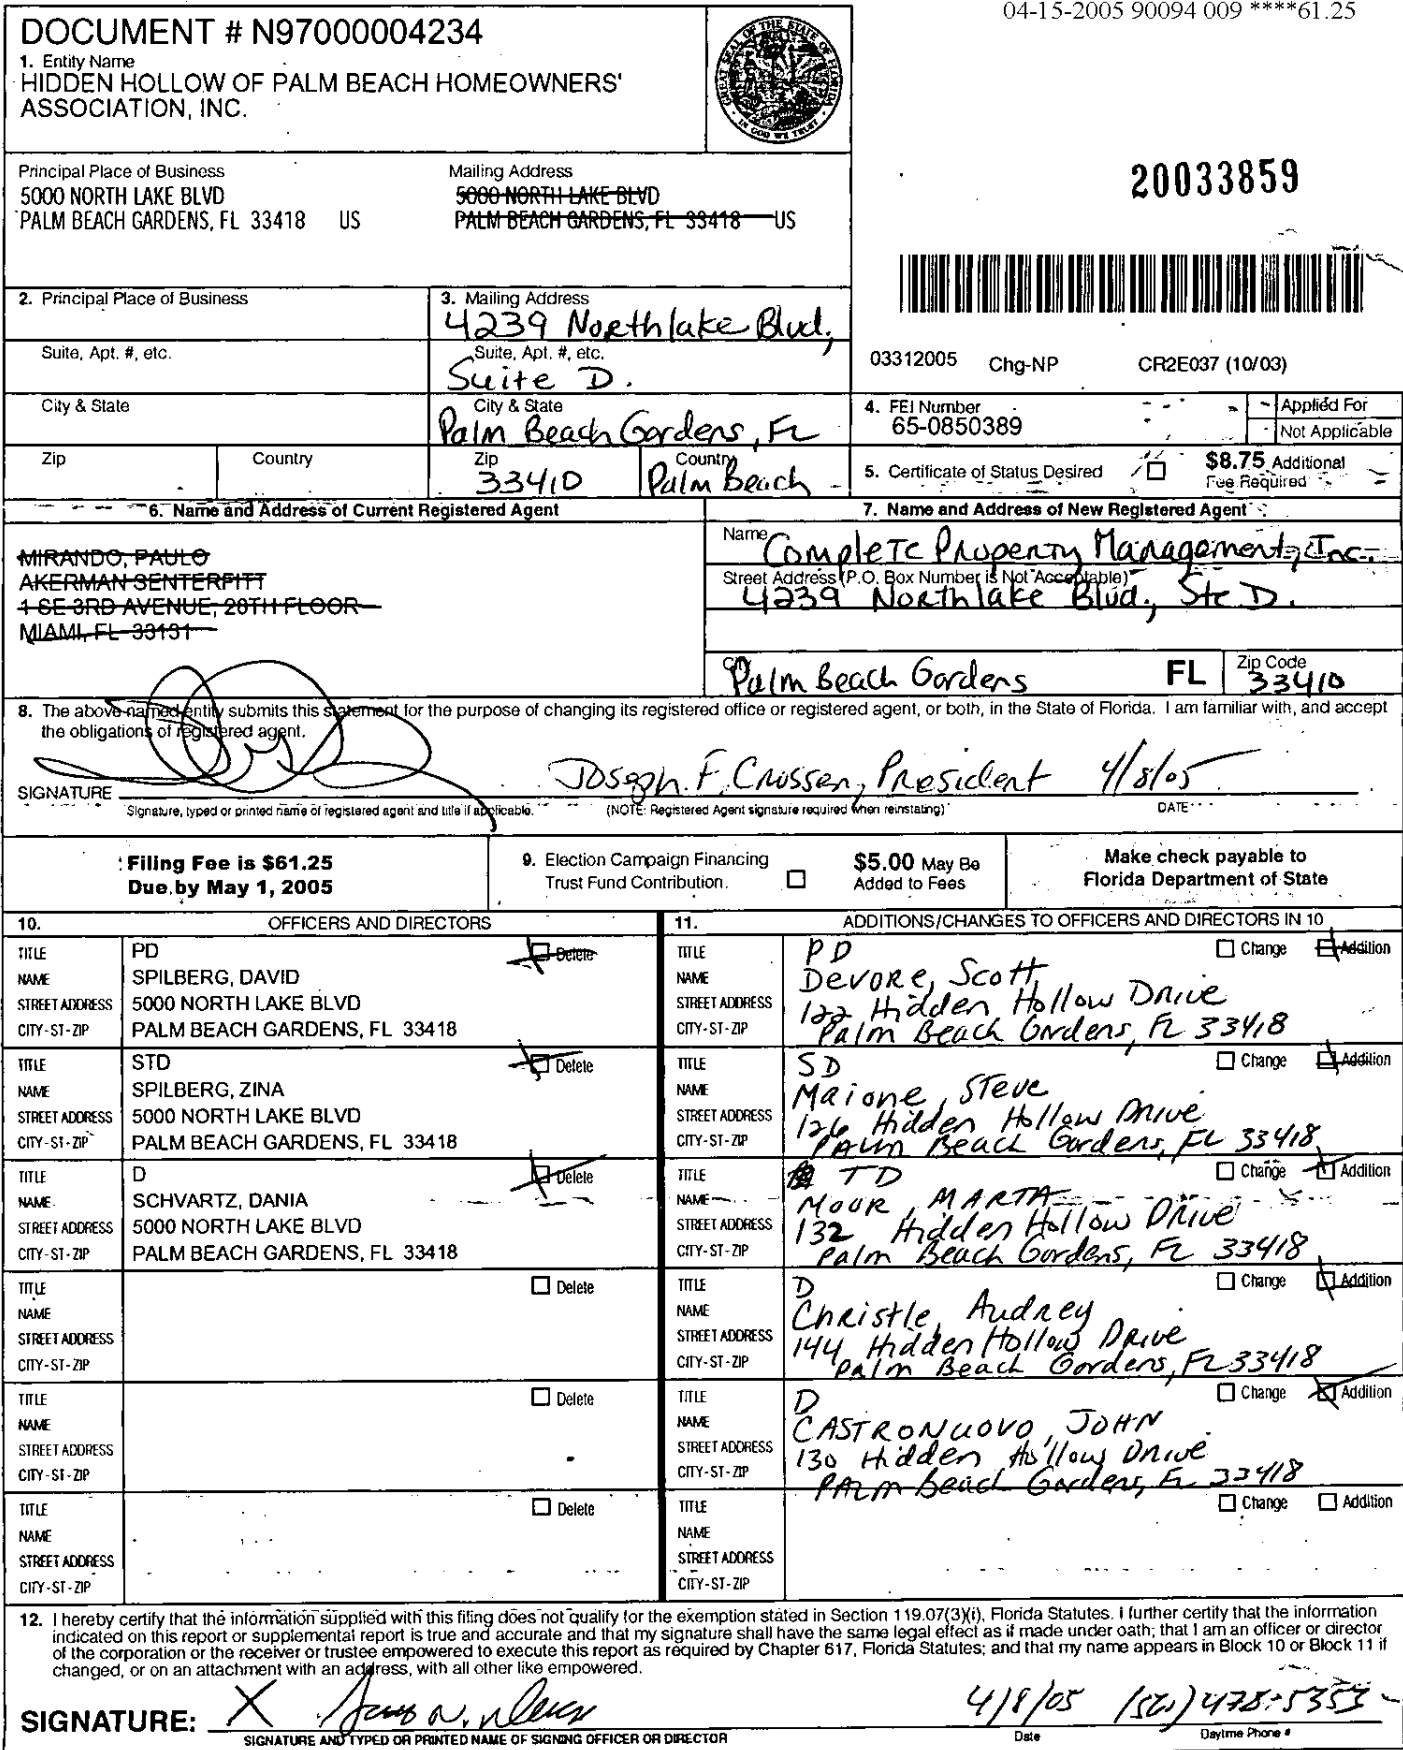 04-15-2005 90094 009 ****61.25
DOCUMENT # N97000004234
1. Entity Name
HIDDEN HOLLOW OF PALM BEACH HOMEOWNERS'
ASSOCIATION, INC.
GREAT SEAL OF THE STATE OF FLORIDA
IN GOD WE TRUST
Principal Place of Business
5000 NORTH LAKE BLVD
PALM BEACH GARDENS, FL 33418 US
Mailing Address
5000 NORTH LAKE BLVD
PALM BEACH GARDENS, FL 33418 US
20033859
2. Principal Place of Business
3. Mailing Address
4239 Northlake Blvd,
Suite, Apt. #, etc.
Suite, Apt. #, etc.
Suite D.
03312005 Chg-NP CR2E037 (10/03)
City & State
City & State
Palm Beach Gardens, FL
4. FEI Number
65-0850389
Applied For
Not Applicable
Zip
Country
Zip
33410
Country
Palm Beach
5. Certificate of Status Desired
$8.75 Additional
Fee Required
6. Name and Address of Current Registered Agent
MIRANDO, PAULO
AKERMAN SENTERFITT
1 SE 3RD AVENUE, 28TH FLOOR
MIAMI, FL 33131
7. Name and Address of New Registered Agent
Name
Complete Property Management, Inc.
Street Address (P.O. Box Number is Not Acceptable)
4239 Northlake Blvd., Ste D.
City
Palm Beach Gardens
FL
Zip Code
33410
8. The above named entity submits this statement for the purpose of changing its registered office or registered agent, or both, in the State of Florida. I am familiar with, and accept
the obligations of registered agent.
SIGNATURE
Joseph F. Crossen, President 4/8/05
Signature, typed or printed name of registered agent and title if applicable.
(NOTE: Registered Agent signature required when reinstating)
DATE
Filing Fee is $61.25
Due by May 1, 2005
9. Election Campaign Financing
Trust Fund Contribution.
$5.00 May Be
Added to Fees
Make check payable to
Florida Department of State
10. OFFICERS AND DIRECTORS
TITLE PD Delete
NAME SPILBERG, DAVID
STREET ADDRESS 5000 NORTH LAKE BLVD
CITY-ST-ZIP PALM BEACH GARDENS, FL 33418
TITLE STD Delete
NAME SPILBERG, ZINA
STREET ADDRESS 5000 NORTH LAKE BLVD
CITY-ST-ZIP PALM BEACH GARDENS, FL 33418
TITLE D Delete
NAME SCHVARTZ, DANIA
STREET ADDRESS 5000 NORTH LAKE BLVD
CITY-ST-ZIP PALM BEACH GARDENS, FL 33418
TITLE Delete
NAME
STREET ADDRESS
CITY-ST-ZIP
TITLE Delete
NAME
STREET ADDRESS
CITY-ST-ZIP
TITLE Delete
NAME
STREET ADDRESS
CITY-ST-ZIP
11. ADDITIONS/CHANGES TO OFFICERS AND DIRECTORS IN 10
TITLE PD Change Addition
NAME Devore, Scott
STREET ADDRESS 122 Hidden Hollow Drive
CITY-ST-ZIP Palm Beach Gardens, FL 33418
TITLE SD Change Addition
NAME Maione, Steve
STREET ADDRESS 126 Hidden Hollow Drive
CITY-ST-ZIP Palm Beach Gardens, FL 33418
TITLE TD Change Addition
NAME Moor, MARTA
STREET ADDRESS 132 Hidden Hollow Drive
CITY-ST-ZIP Palm Beach Gardens, FL 33418
TITLE D Change Addition
NAME Christle, Audrey
STREET ADDRESS 144 Hidden Hollow Drive
CITY-ST-ZIP Palm Beach Gardens, FL 33418
TITLE D Change Addition
NAME CASTRONUOVO, JOHN
STREET ADDRESS 130 Hidden Hollow Drive
CITY-ST-ZIP Palm Beach Gardens, FL 33418
TITLE Change Addition
NAME
STREET ADDRESS
CITY-ST-ZIP
12. I hereby certify that the information supplied with this filing does not qualify for the exemption stated in Section 119.07(3)(i), Florida Statutes. I further certify that the information
indicated on this report or supplemental report is true and accurate and that my signature shall have the same legal effect as if made under oath; that I am an officer or director
of the corporation or the receiver or trustee empowered to execute this report as required by Chapter 617, Florida Statutes; and that my name appears in Block 10 or Block 11 if
changed, or on an attachment with an address, with all other like empowered.
SIGNATURE: X
4/8/05 (561) 478-5353
SIGNATURE AND TYPED OR PRINTED NAME OF SIGNING OFFICER OR DIRECTOR
Date
Daytime Phone #